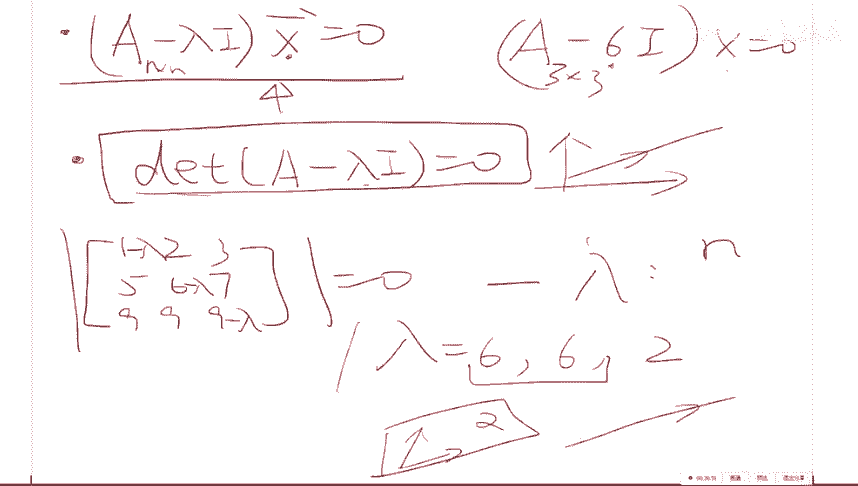 (A - λI) x⃗ = 0
n×n
(A - 6I) x = 0
3×3
det(A - λI) = 0
1-λ 2 3
5 6-λ 7
9 9 9-λ
= 0
- λ: n
λ = 6, 6, 2
2